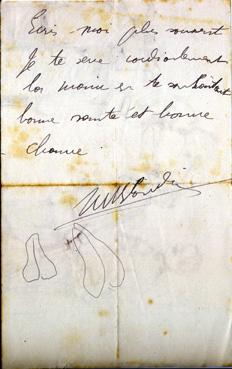 Ecris moi plus souvent
Je te serre cordialement
la main en te souhaitant
bonne santé et bonne
chance